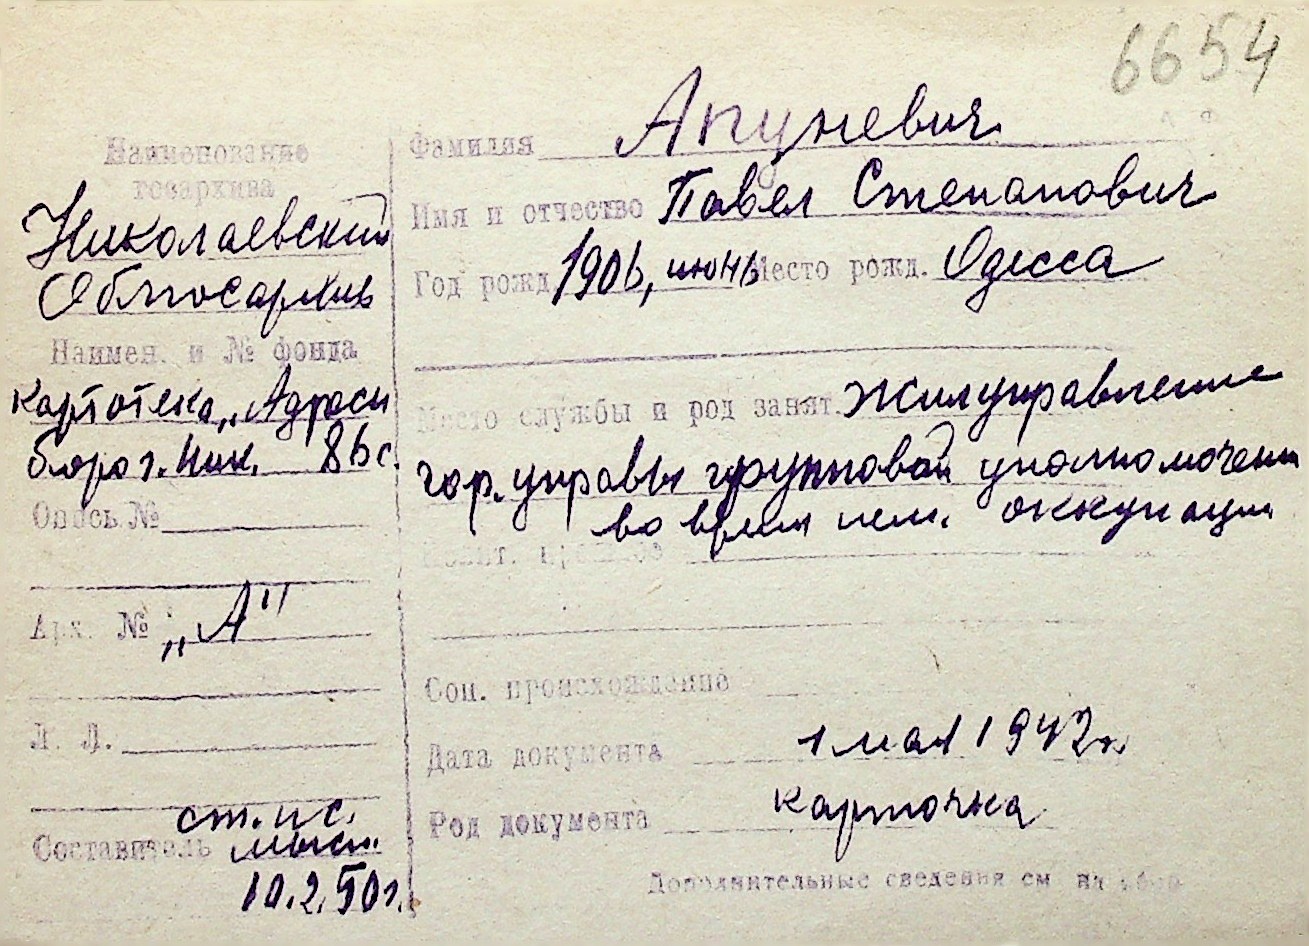 6654
Наименование
госархива
Николаевский
Облгосархив
Наимен. и № фонда
картотека „Адресн
бюро г. Ник. 86с.
Опись №
Арх. № „А"
Л. Л.
ст. н.с.
Составитель
10.2.50г.
Фамилия Апуневич
Имя и отчество Павел Степанович
Год рожд. 1906, июнь Место рожд. Одесса
Место службы и род занят. Жилуправление
гор. управы групповой уполномочени
во время нем. оккупации
Полит. прошлое
Соц. происхождение
Дата документа 1 мая 1942г.
Род документа карточка
Дополнительные сведения см на обор